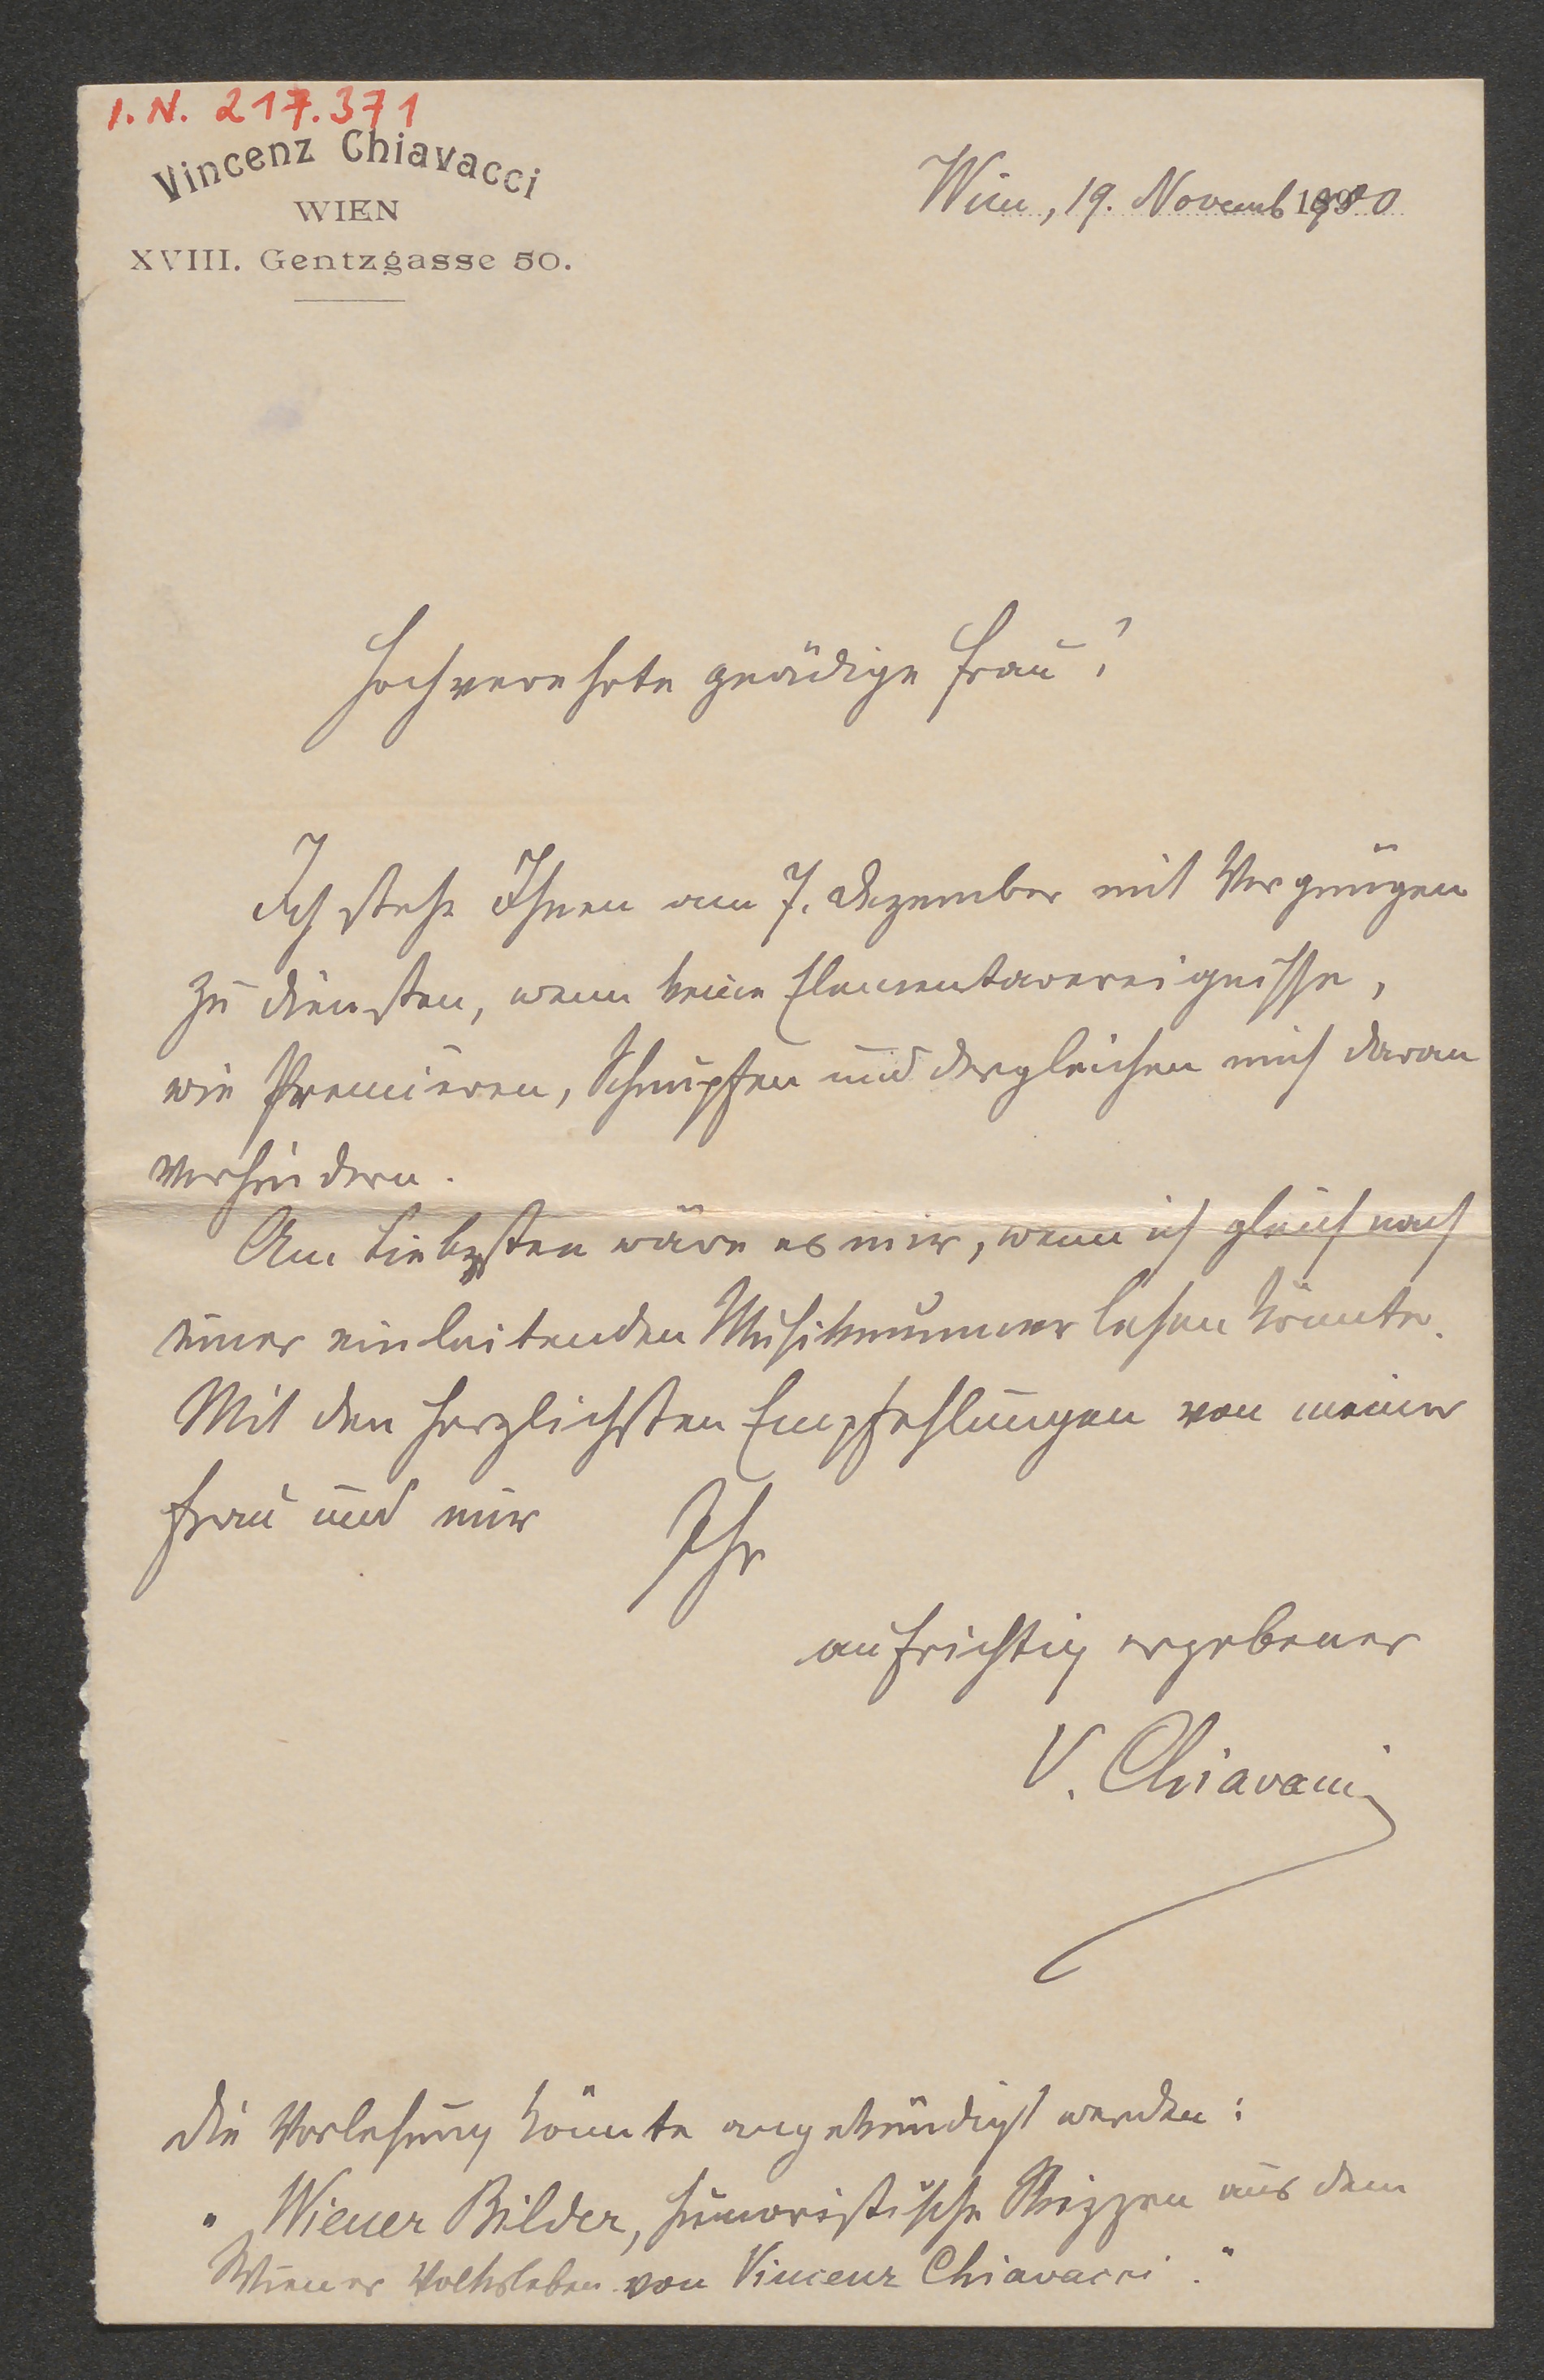 I. N. 217.371
Vincenz Chiavacci
WIEN
XVIII. Gentzgasse 50.
Wien, 19. Novemb 1900
Hochverehrte gnädige Frau!
Ich stehe Ihnen am 7. Dezember mit Vergnügen
zu Diensten, wenn keine Elementarereignisse,
wie Premieren, Schnupfen und dergleichen mich daran
verhindern.
Am liebsten wäre es mir, wenn ich gleich nach
einer einleitenden Musiknummer lesen könnte.
Mit den herzlichsten Empfehlungen von meiner
Frau und mir Ihr
aufrichtig ergebener
V. Chiavacci
Die Vorlesung könnte angekündigt werden:
„Wiener Bilder, humoristische Skizzen aus dem
Wiener Volksleben von Vincenz Chiavacci."